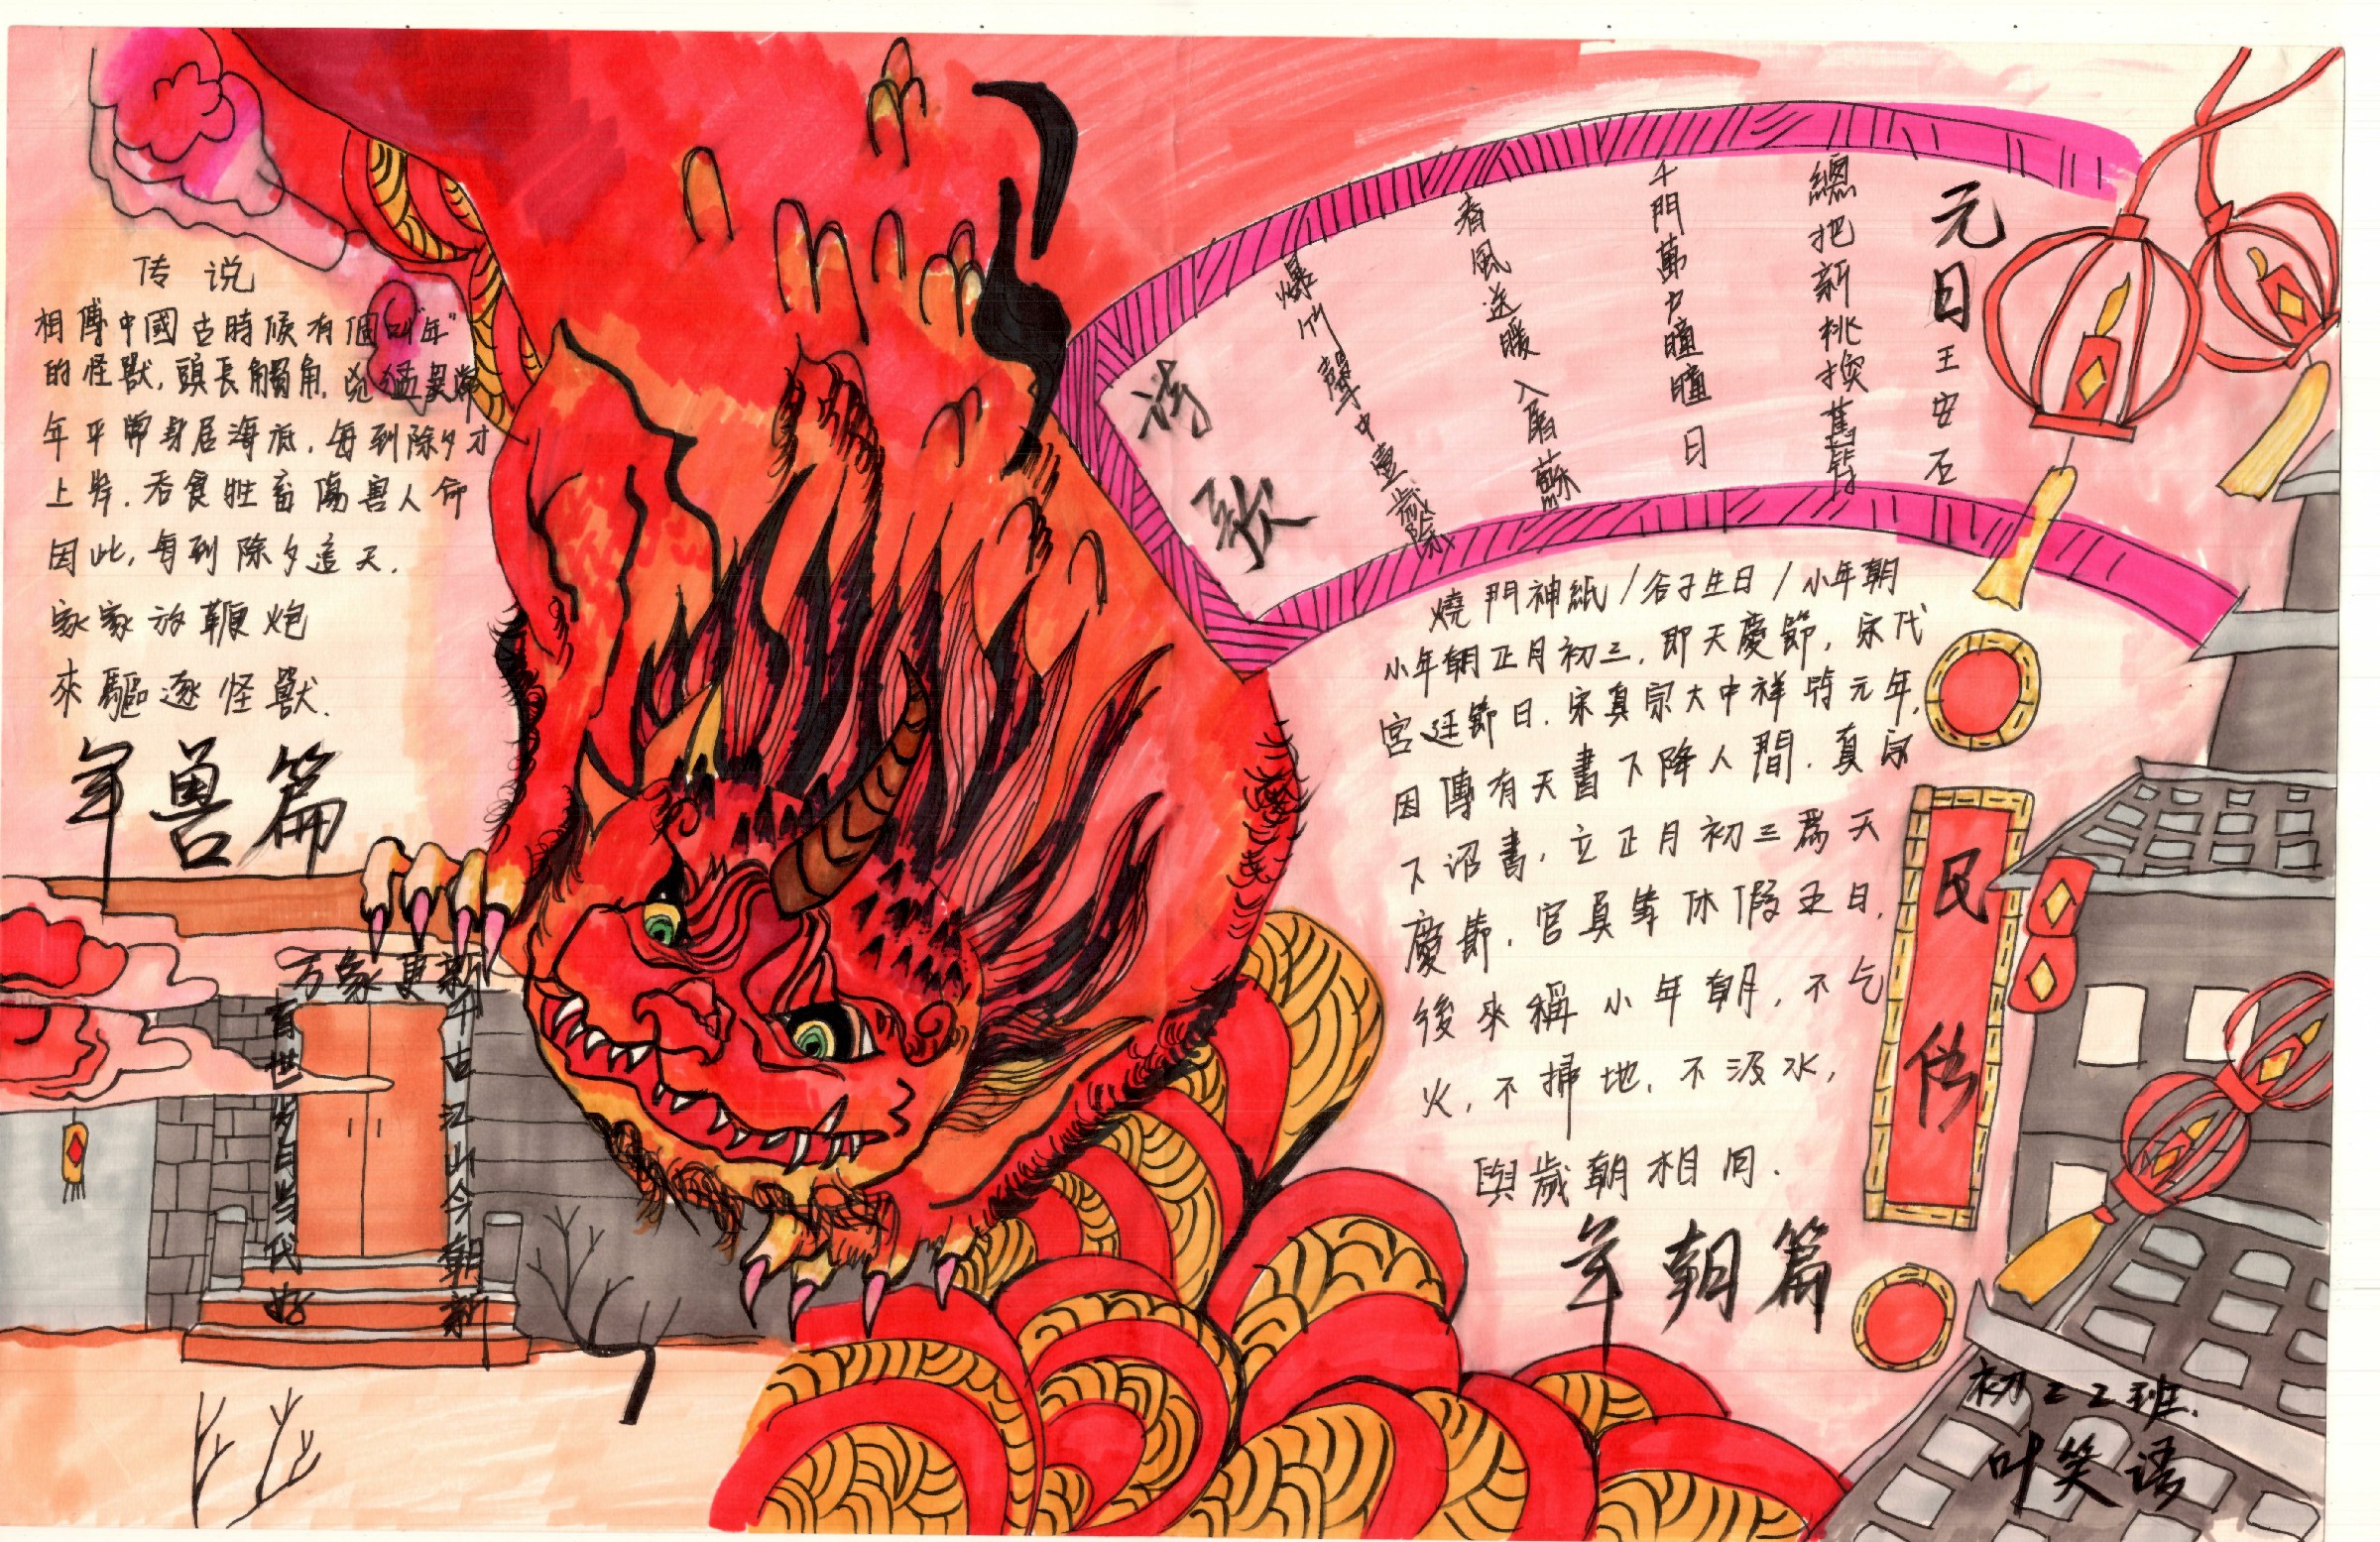 传说
相傳中國古時候有個叫"年"
的怪獸,頭長觸角,凶猛異常
年平常身居海底,每到除夕才
上岸,吞食牲畜傷害人命
因此,每到除夕這天,
家家放鞭炮
來驅逐怪獸.
年兽篇
万象更新
千古江山今朝新
百世岁月当代好
诗歌
元日
王安石
爆竹聲中壹歲除
春風送暖入屠蘇
千門萬户曈曈日
總把新桃換舊符
燒門神紙/谷子生日/小年朝
小年朝正月初三,即天慶節,宋代
宮廷節日.宋真宗大中祥符元年,
因傳有天書下降人間.真宗
下詔書,立正月初三爲天
慶節,官員等休假五日,
後來稱小年朝,不乞
火,不掃地,不汲水,
與歲朝相同.
年朝篇
民俗
初二2班.
叶笑语